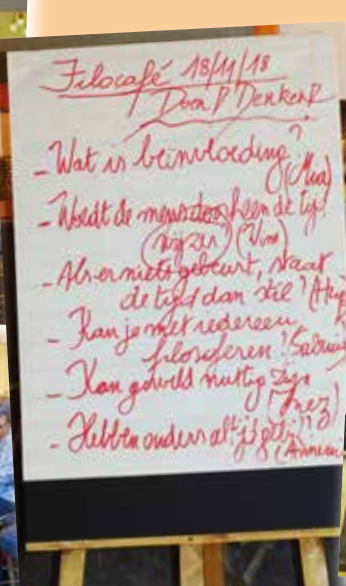 Filocafé 18/11/18
Door P Denker
- Wat is beïnvloeding?
(Mia)
- Wordt de mens doorheen de tijd
wijzer? (Wim)
- Als er niets gebeurt, staat
de tijd dan stil?
- Kan je met iedereen
filosoferen?
- Kan geweld nuttig zijn
(Inez)
- Hebben ouders altijd gelijk?